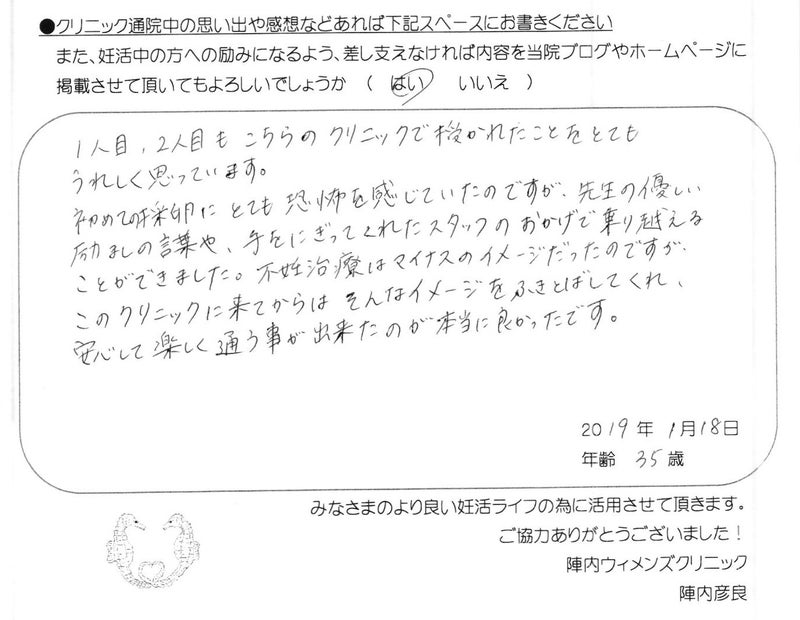 ●クリニック通院中の思い出や感想などあれば下記スペースにお書きください
また、妊活中の方への励みになるよう、差し支えなければ内容を当院ブログやホームページに
掲載させて頂いてもよろしいでしょうか ( はい いいえ )
1人目、2人目も こちらの クリニックで 授かれたことを とても
うれしく思っています。
初めての採卵に とても 恐怖を感じていたのですが、先生の優しい
励ましの言葉や、手をにぎってくれたスタッフの おかげで乗り越える
ことができました。不妊治療はマイナスのイメージだったのですが、
このクリニックに来てからは そんなイメージを ふきとばしてくれ、
安心して 楽しく 通う事が 出来たのが 本当に 良かったです。
2019年 1月18日
年齢 35歳
みなさまのより良い妊活ライフの為に活用させて頂きます。
ご協力ありがとうございました！
陣内ウィメンズクリニック
陣内彦良